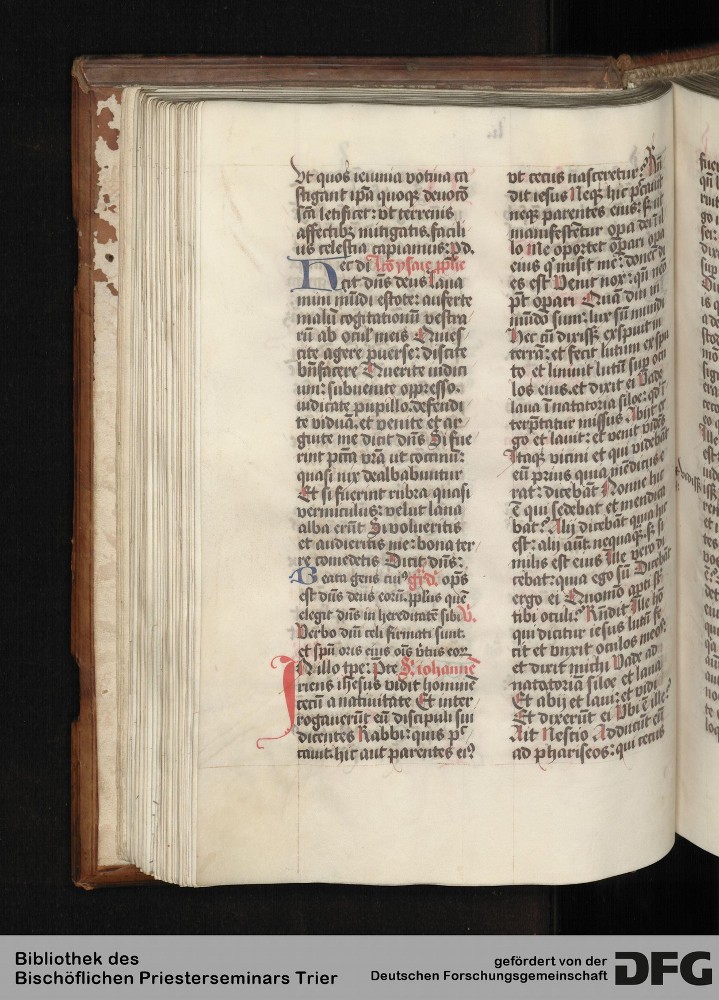 Vt quos ieiunia votiua ca
stigant ip̄a quoqꝫ deuotō
sc̄a letificet: vt terrenis
affectibꝫ mitigatis. facili
us celestia capiamus: Pd.
Hec dī Lcō ysaie pp̄he
cit dn̄s deus Laua
mini mūdi estote: auferte
malū cogitationū vestra
rū ab oculꝭ meis Quies
cite agere ꝑuerse: discite
bn̄facere Querite iudici
um: subuenite oppresso.
iudicate pupillo. defendi
te viduā. et venite et ar
guite me dicit dn̄s Si fue
rint pctā vrā ut coccinū:
quasi nix dealbabuntur
Et si fuerint rubra quasi
vermiculus: velut lana
alba erūt Si volueritis
et audieritis me: bona ter
re comedetis Dicit dn̄s:
Beata gens cuiꝰ gͬdͣ. op̄s
est dn̄s deus eorū. pplus quē
elegit dn̄s in hereditatē sibi V.
Verbo dn̄i celi firmati sunt.
et spū oris eius oīs v̄tus eoꝝ
In illo tpe: Pre S. iohannē
riens ihesus vidit hominē
cecū a natiuitate Et inter
rogauerūt eū discipuli sui
dicentes Rabbi: quis pec
cauit. hic aut parentes eiꝰ
vt cecus nasceretur? Rn̄
dit iesus Neqꝫ hic peccauit
neqꝫ parentes eius: sꝫ ut
manifestētur opa dei ī il
lo Me oportet opari opa
eius q̇ misit me: donec di
es est Venit nox: qn̄ nēo
pt̄ opari Quādiu in
mūdo sum: lux sū mundi
Hec cū dixissꝫ exspuit in
terrā: et fecit lutum ex spu
to et liniuit lutū sup ocu
los eius. et dixit ei Vade
laua ī natatoria siloe: qd̄ ī
terp̄tatur missus Abijt er
go et lauit: et venit videns
Itaqꝫ vicini et qui videbāt
eū prius quia mēdicus e
rat: dicebāt Nonne hic
ē qui sedebat et mendica
bat? Alij dicebāt quia hic
est: alij aūt. nequaqꝫ. sꝫ si
milis est eius Ille vero di
cebat: quia ego sū Dicebāt
ergo ei Quomō apti sūt
tibi oculi? Rn̄dit Ille hō
qui dicitur iesus lutū fe
cit et vnxit oculos meos:
et dixit michi Vade ad
natatoriā siloe et laua
Et abij et laui: et vidi
Et dixerūt ei Vbi ē ille?
Ait Nescio Adducūt eū
ad phariseos: qui cecus
Bibliothek des
Bischöflichen Priesterseminars Trier
gefördert von der
Deutschen Forschungsgemeinschaft
DFG